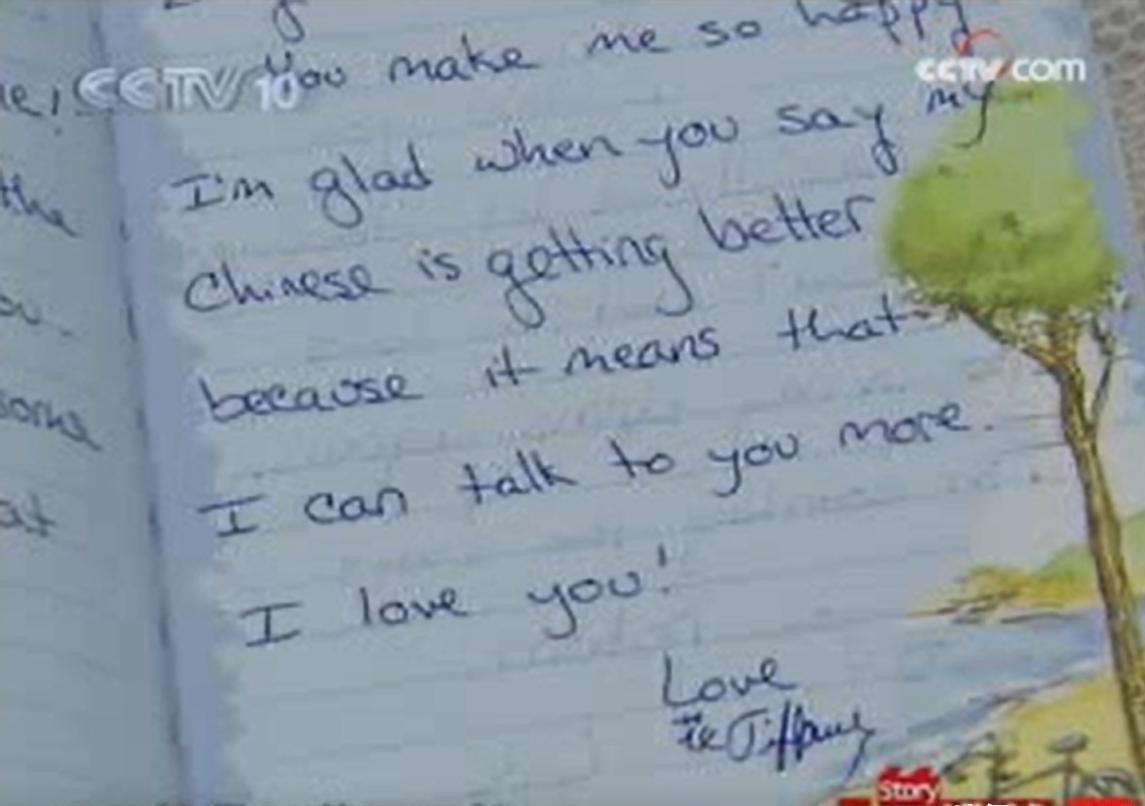 You make me so happy
I'm glad when you say my
Chinese is getting better
because it means that
I can talk to you more.
I love you!
Love
Tiffany
the
some
at
CCTV 10
cctv.com
Story